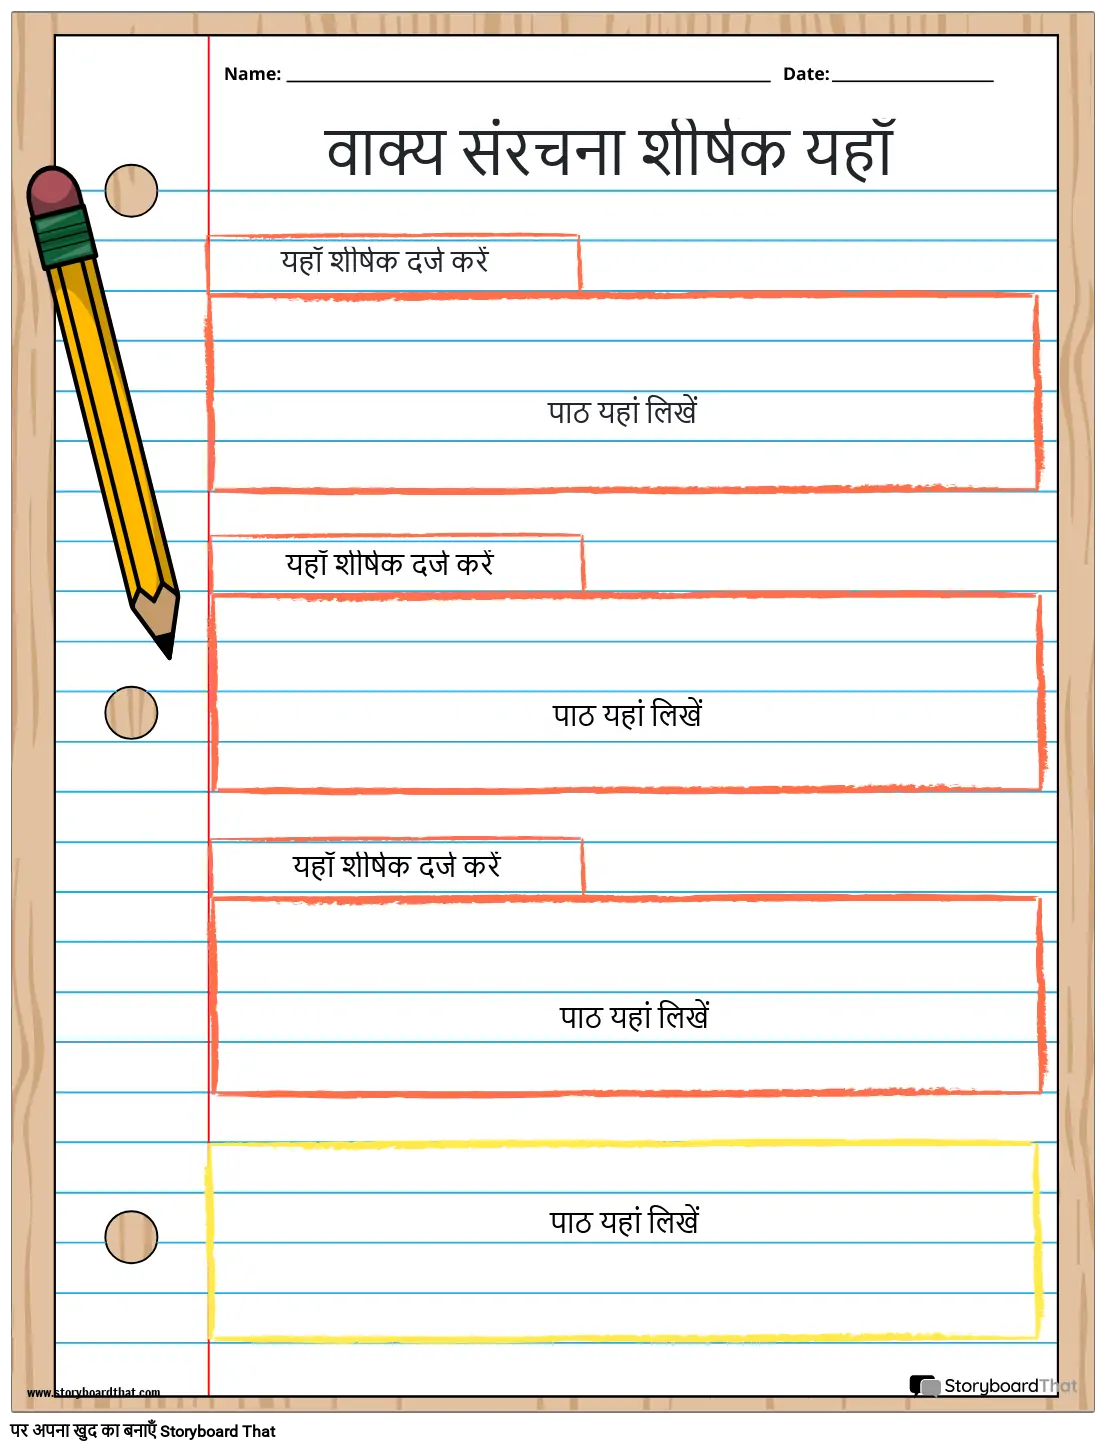 Name: Date:
वाक्य संरचना शीर्षक यहाँ
यहाँ शीर्षक दर्ज करें
पाठ यहां लिखें
यहाँ शीर्षक दर्ज करें
पाठ यहां लिखें
यहाँ शीर्षक दर्ज करें
पाठ यहां लिखें
पाठ यहां लिखें
www.storyboardthat.com
StoryboardThat
पर अपना खुद का बनाएँ Storyboard That